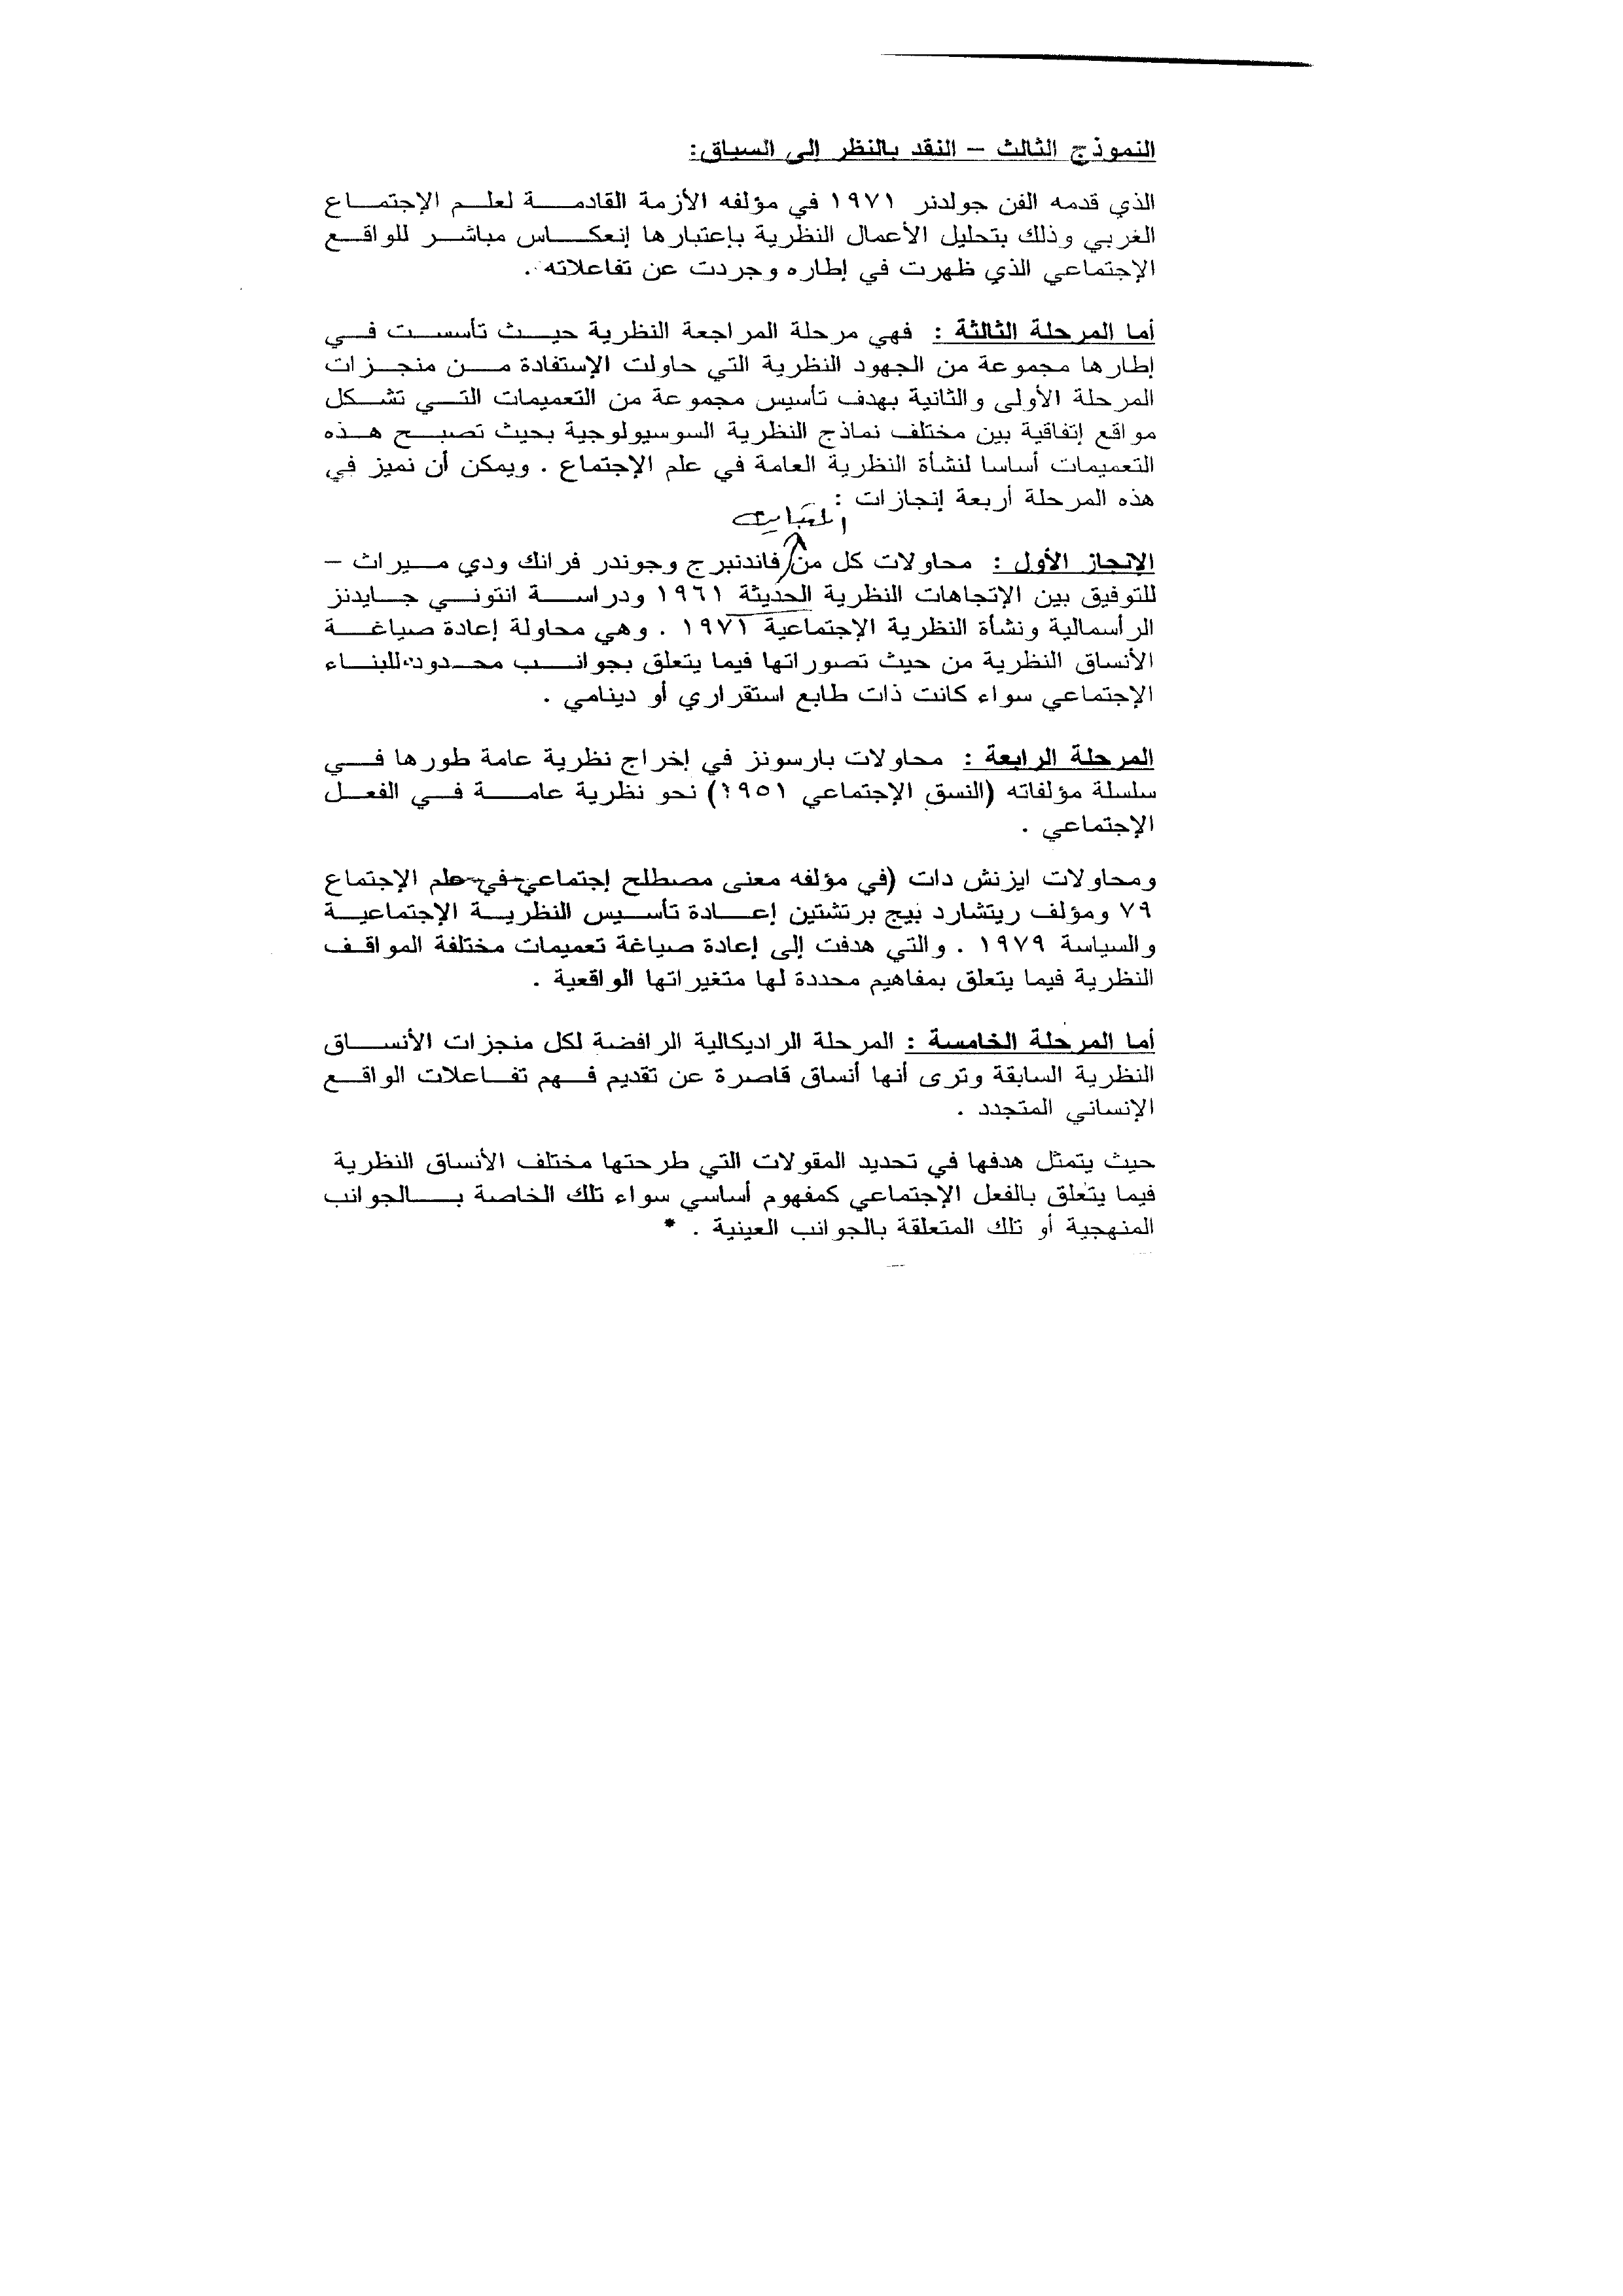 النموذج الثالث – النقد بالنظر إلى السياق:
الذي قدمه الفن جولدنر ١٩٧١ في مؤلفه الأزمة القادمة لعلم الإجتماع
الغربي وذلك بتحليل الأعمال النظرية بإعتبارها إنعكاس مباشر للواقع
الإجتماعي الذي ظهرت في إطاره وجردت عن تفاعلاته .
أما المرحلة الثالثة : فهي مرحلة المراجعة النظرية حيث تأسست في
إطارها مجموعة من الجهود النظرية التي حاولت الإستفادة من منجزات
المرحلة الأولى والثانية بهدف تأسيس مجموعة من التعميمات التي تشكل
مواقع إتفاقية بين مختلف نماذج النظرية السوسيولوجية بحيث تصبح هذه
التعميمات أساسا لنشأة النظرية العامة في علم الإجتماع . ويمكن أن نميز في
هذه المرحلة أربعة إنجازات :
الإنجاز الأول : محاولات كل من فاندنبرج وجوندر فرانك ودي ميراث –
للتوفيق بين الإتجاهات النظرية الحديثة ١٩٦١ ودراسة انتوني جايدنز
الرأسمالية ونشأة النظرية الإجتماعية ١٩٧١ . وهي محاولة إعادة صياغة
الأنساق النظرية من حيث تصوراتها فيما يتعلق بجوانب محدودة للبناء
الإجتماعي سواء كانت ذات طابع استقراري أو دينامي .
المرحلة الرابعة : محاولات بارسونز في إخراج نظرية عامة طورها في
سلسلة مؤلفاته (النسق الإجتماعي ١٩٥١) نحو نظرية عامة في الفعل
الإجتماعي .
ومحاولات ايزنش دات (في مؤلفه معنى مصطلح إجتماعي في علم الإجتماع
٧٩ ومؤلف ريتشارد بيج برتشتين إعادة تأسيس النظرية الإجتماعية
والسياسة ١٩٧٩ . والتي هدفت إلى إعادة صياغة تعميمات مختلفة المواقف
النظرية فيما يتعلق بمفاهيم محددة لها متغيراتها الواقعية .
أما المرحلة الخامسة : المرحلة الراديكالية الرافضة لكل منجزات الأنساق
النظرية السابقة وترى أنها أنساق قاصرة عن تقديم فهم تفاعلات الواقع
الإنساني المتجدد .
حيث يتمثل هدفها في تحديد المقولات التي طرحتها مختلف الأنساق النظرية
فيما يتعلق بالفعل الإجتماعي كمفهوم أساسي سواء تلك الخاصة بالجوانب
المنهجية أو تلك المتعلقة بالجوانب العينية . *